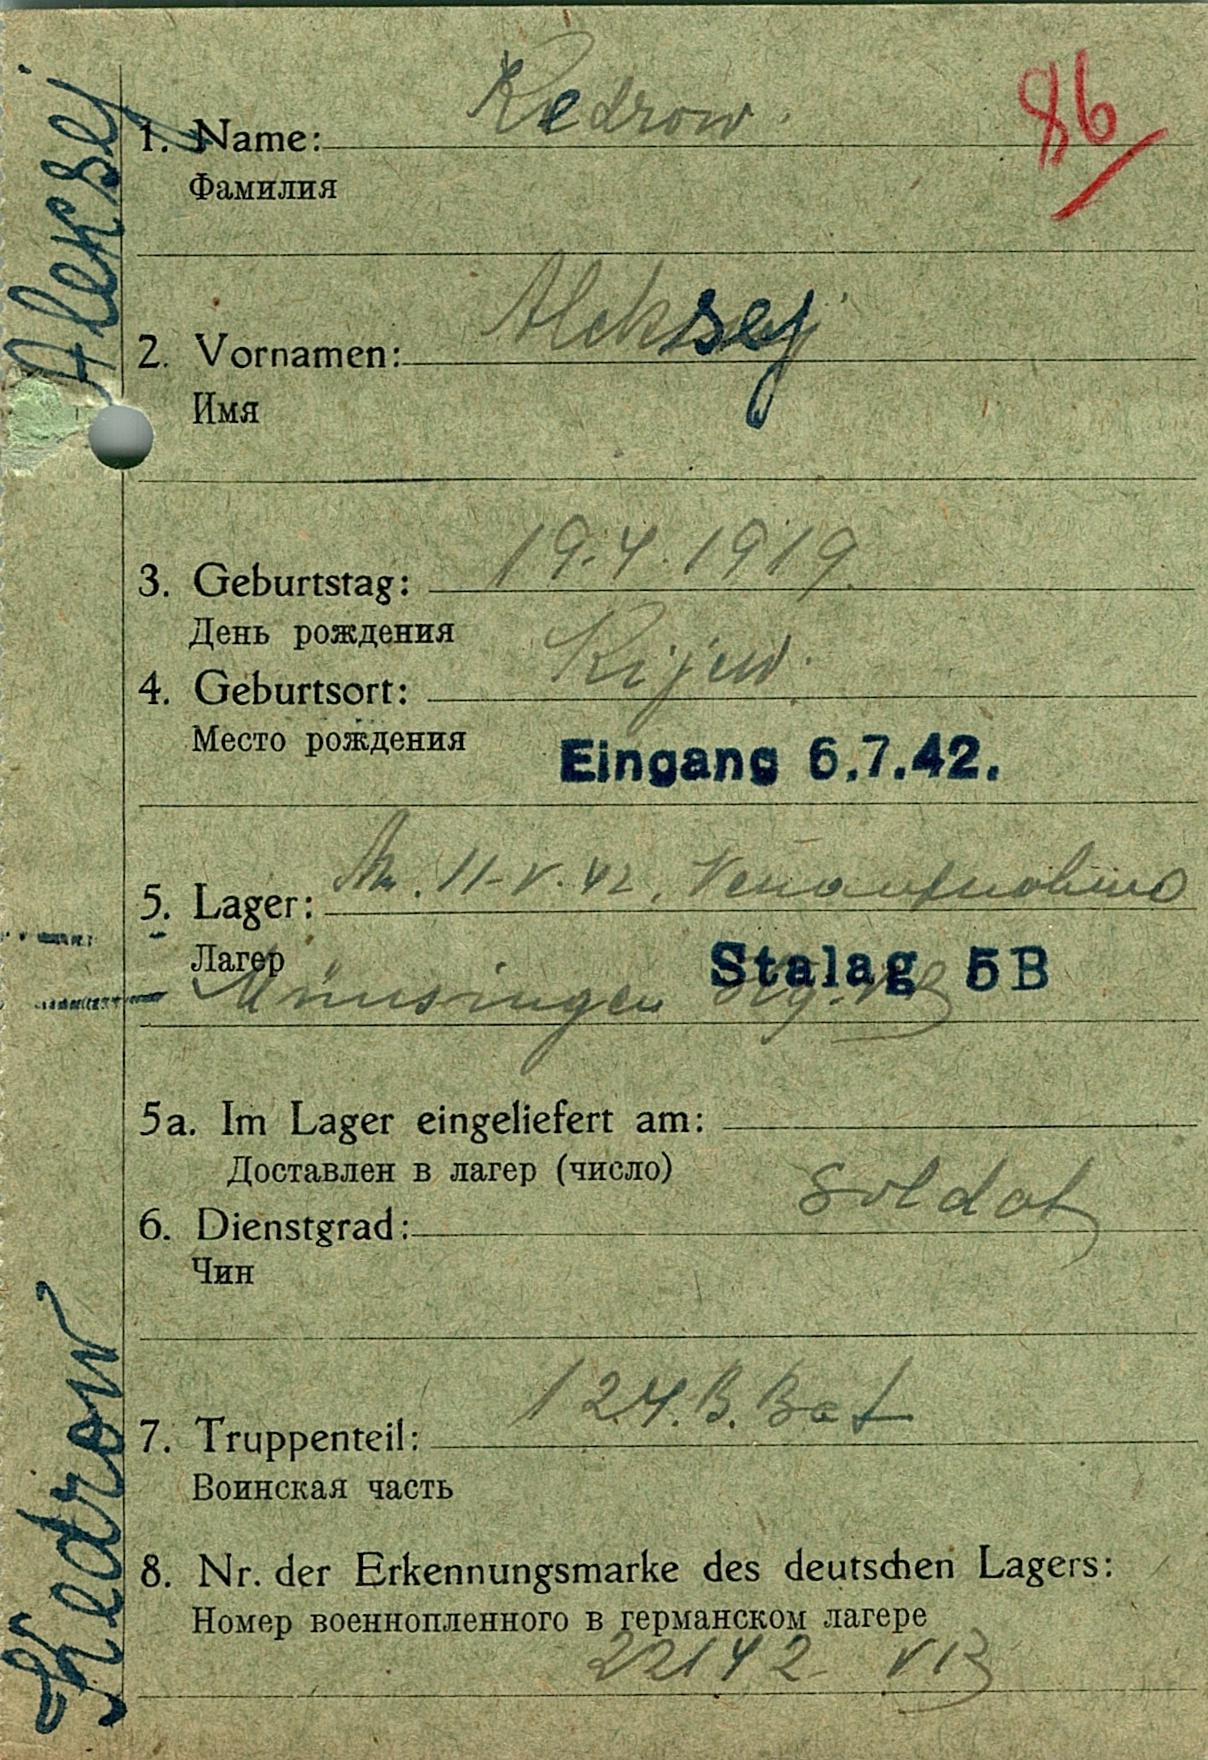 Kedrow.
86
1. Name:
Фамилия
Aleksej
2. Vornamen:
Имя
19.4.1919.
3. Geburtstag:
День рождения
Kijew.
4. Geburtsort:
Место рождения
Eingang 6.7.42.
11-V.42,
5. Lager:
Лагер
Stalag 5B
Münsingen
5a. Im Lager eingeliefert am:
Доставлен в лагер (число)
Soldat
6. Dienstgrad:
Чин
124.B.Bat
7. Truppenteil:
Воинская часть
8. Nr. der Erkennungsmarke des deutschen Lagers:
Номер военнопленного в германском лагере
22142 VB
Kedrow Aleksej